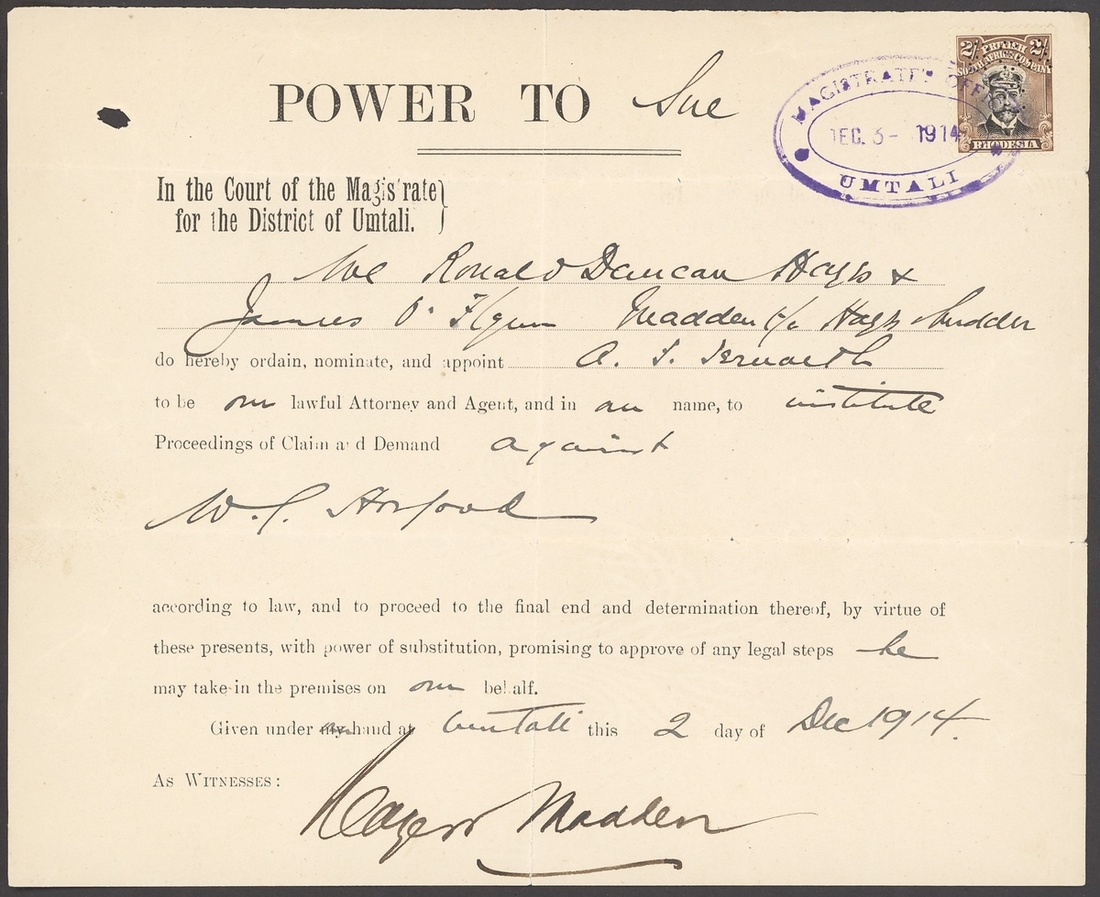 POWER TO Sue
2/- 2/-
BRITISH
SOUTH AFRICA COMPANY
RHODESIA
MAGISTRATE'S OFFICE
DEC. 3 - 1914
UMTALI
In the Court of the Magistrate
for the District of Umtali.
We Ronald Duncan Hays &
James O'Flynn Madden c/o Hays Madden
do hereby ordain, nominate, and appoint A.
to be our lawful Attorney and Agent, and in our name, to institute
Proceedings of Claim and Demand against
W.
according to law, and to proceed to the final end and determination thereof, by virtue of
these presents, with power of substitution, promising to approve of any legal steps he
may take in the premises on our behalf.
Given under my hand at Umtali this 2 day of Dec 1914.
As Witnesses:
Madden